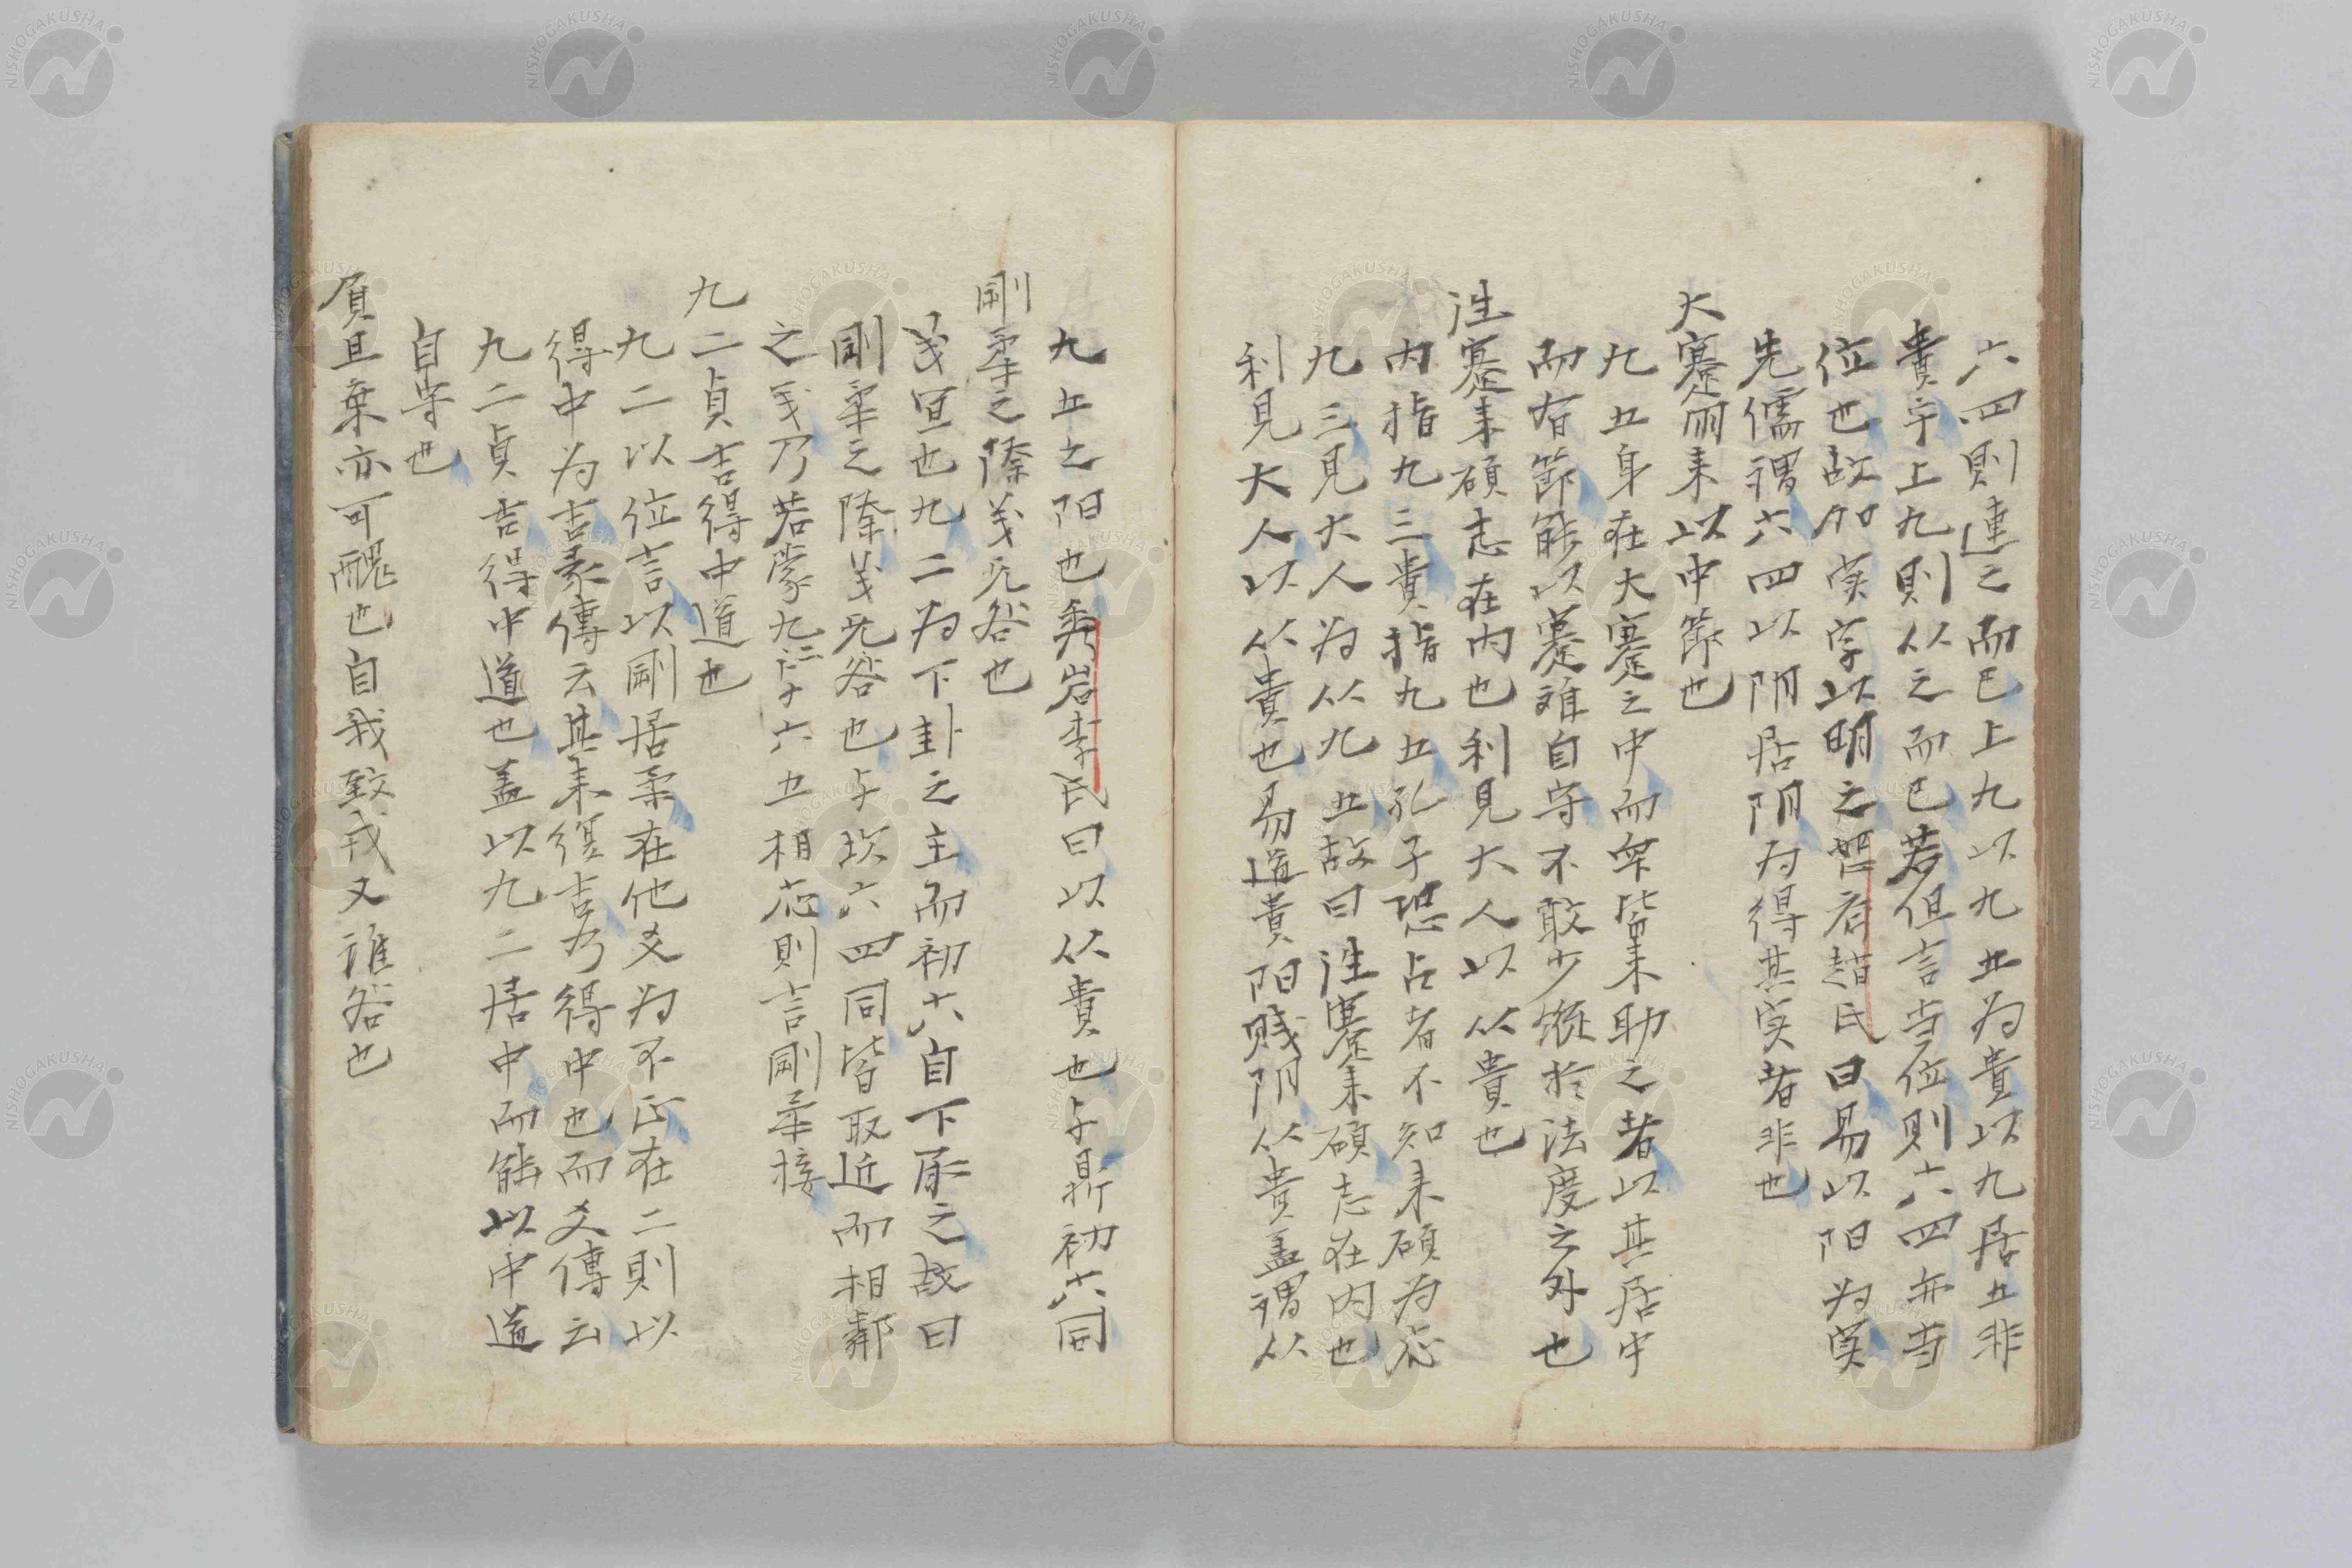 六四則連之而已上九以九五為貴以九居五非
貴乎上九則从之而已若但言当位則六四亦当
位也故加実字以明之智者趙氏曰易以阳为実
先儒谓六四以阴居阴为得其実者非也
大蹇朋来以中節也
九五身在大蹇之中而卒皆来助之者以其居中
而有節能以蹇难自守不敢少縱於法度之外也
往蹇来碩志在内也利見大人以从貴也
内指九三貴指九五孔子恐占者不知来碩为応
九三見大人为从九五故曰往蹇来碩志在内也
利見大人以从貴也易道貴阳賤阴从貴盖谓从
九五之阳也彝岩李氏曰以从貴也与鼎初六同
剛柔之際义无咎也
义宜也九二为下卦之主而初六自下承之故曰
剛柔之際义无咎也与坎六四同皆取近而相鄰
之义乃若蒙九二与六五相応則言剛柔接
九二貞吉得中道也
九二以位言以剛居柔在他爻为不正在二則以
得中为吉彖傳云其来復吉乃得中也而爻傳云
九二貞吉得中道也盖以九二居中而能以中道
自守也
負且乗亦可醜也自我致戎又谁咎也
NISHOGAKUSHA